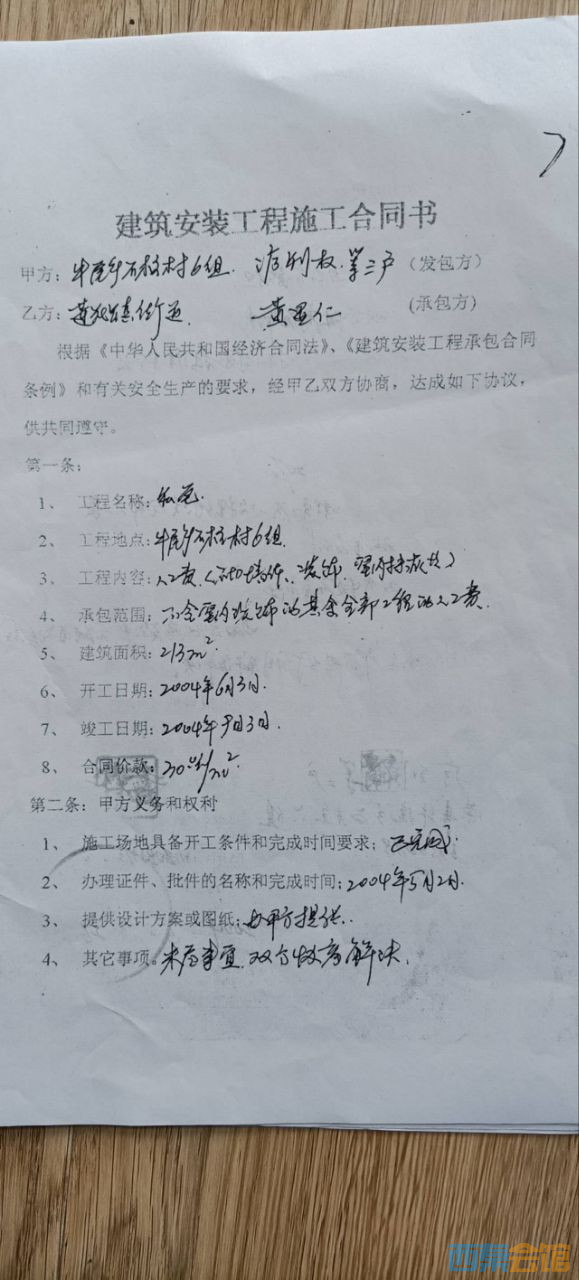 建筑安装工程施工合同书
甲方：牛尾乡石柱村6组 第三户（发包方）
乙方：黄 仁 (承包方)
根据《中华人民共和国经济合同法》、《建筑安装工程承包合同
条例》和有关安全生产的要求，经甲乙双方协商，达成如下协议，
供共同遵守。
第一条：
1、 工程名称：私宅.
2、 工程地点：牛尾乡石柱村6组.
3、 工程内容：人工费
4、 承包范围：不含室内装饰的其余全部工程的人工费.
5、 建筑面积：213m²
6、 开工日期：2004年6月3日.
7、 竣工日期：2004年9月3日.
8、 合同价款：/m²
第二条：甲方义务和权利
1、 施工场地具备开工条件和完成时间要求；已完成.
2、 办理证件、批件的名称和完成时间：2004年5月2日.
3、 提供设计方案或图纸：由甲方提供.
4、 其它事项。未尽事宜.双方协商解决.
西祠会馆